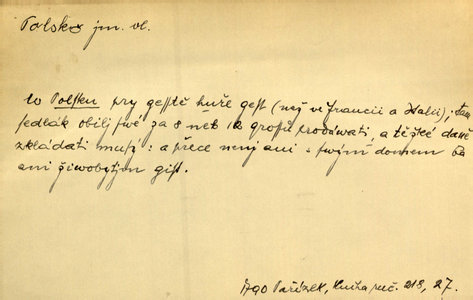 Polsko jm. vl.
w Polsku prý gesstě hůře gest (než ve Francii a Italii); tam
sedlák obilj swé za 8 neb 12 grossů prodáwati, a těžké daně
skládati musý: a přece nenj ani s swým domem
ani žiwobytjm gist.
1790 Pařízek, Kniha nuč. 218, 27.